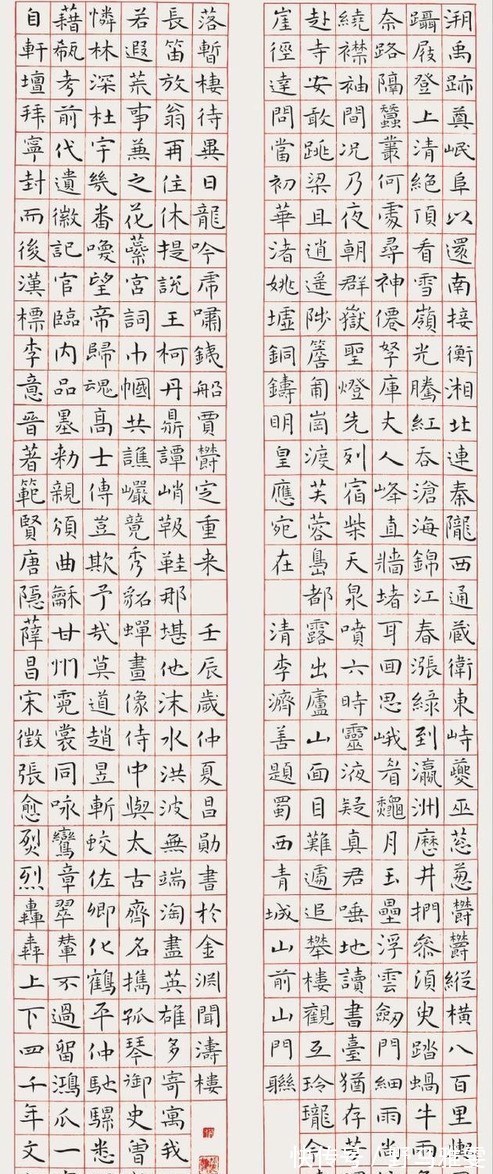 溯禹跡奠岷阜以還南接衡湘北連秦隴西通藏衛東峙夔巫葱葱鬱鬱縱橫八百里
躡屐登上清絕頂看雪嶺光騰紅吞滄海錦江春漲綠到瀛洲歷井捫參須臾踏蝸牛兩
奈路隔蠶叢何處尋神僊孥庫丈人峰直牆堵耳回思峨眉龝月玉壘浮雲劒門細雨
繞襟袖間況乃夜朝群嶽聖燈先列宿柴天泉噴六時靈液疑真君唾地讀書臺猶存
赴寺安敢跳梁且逍遙陟簷葡崗渡芙蓉島都露出廬山面目難遽追攀樓觀互玲瓏今
崖徑達問當初華渚姚墟銅鑄明皇應宛在 清李濟善題蜀西青城山前山門聯
落暫棲待異日龍吟虎嘯鐵船賈鬱定重来 壬辰歲仲夏昌勛書於金淵聞濤樓
長笛放翁再住休提說王柯丹鼎譚峭靸鞋那堪他沫水洪波無端淘盡英雄多寄寓我
若遐荒事兼之花蕊宮詞巾幗共譙巖競秀貂蟬畫像侍中與太古齊名攜孤琴御史曾
憐林深杜宇幾番喚望帝歸魂高士傳豈欺予哉莫道趙昱斬蛟佐卿化鶴平仲馳騾悉
藉瓻考前代遺徽記官臨內品墨勑親頒曲龢甘州霓裳同咏鸞章翠輦不過留鴻爪一
自軒壇拜寧封而後漢標李意晉著範賢唐隱薛昌宋徵張愈烈烈轟轟上下四千年文